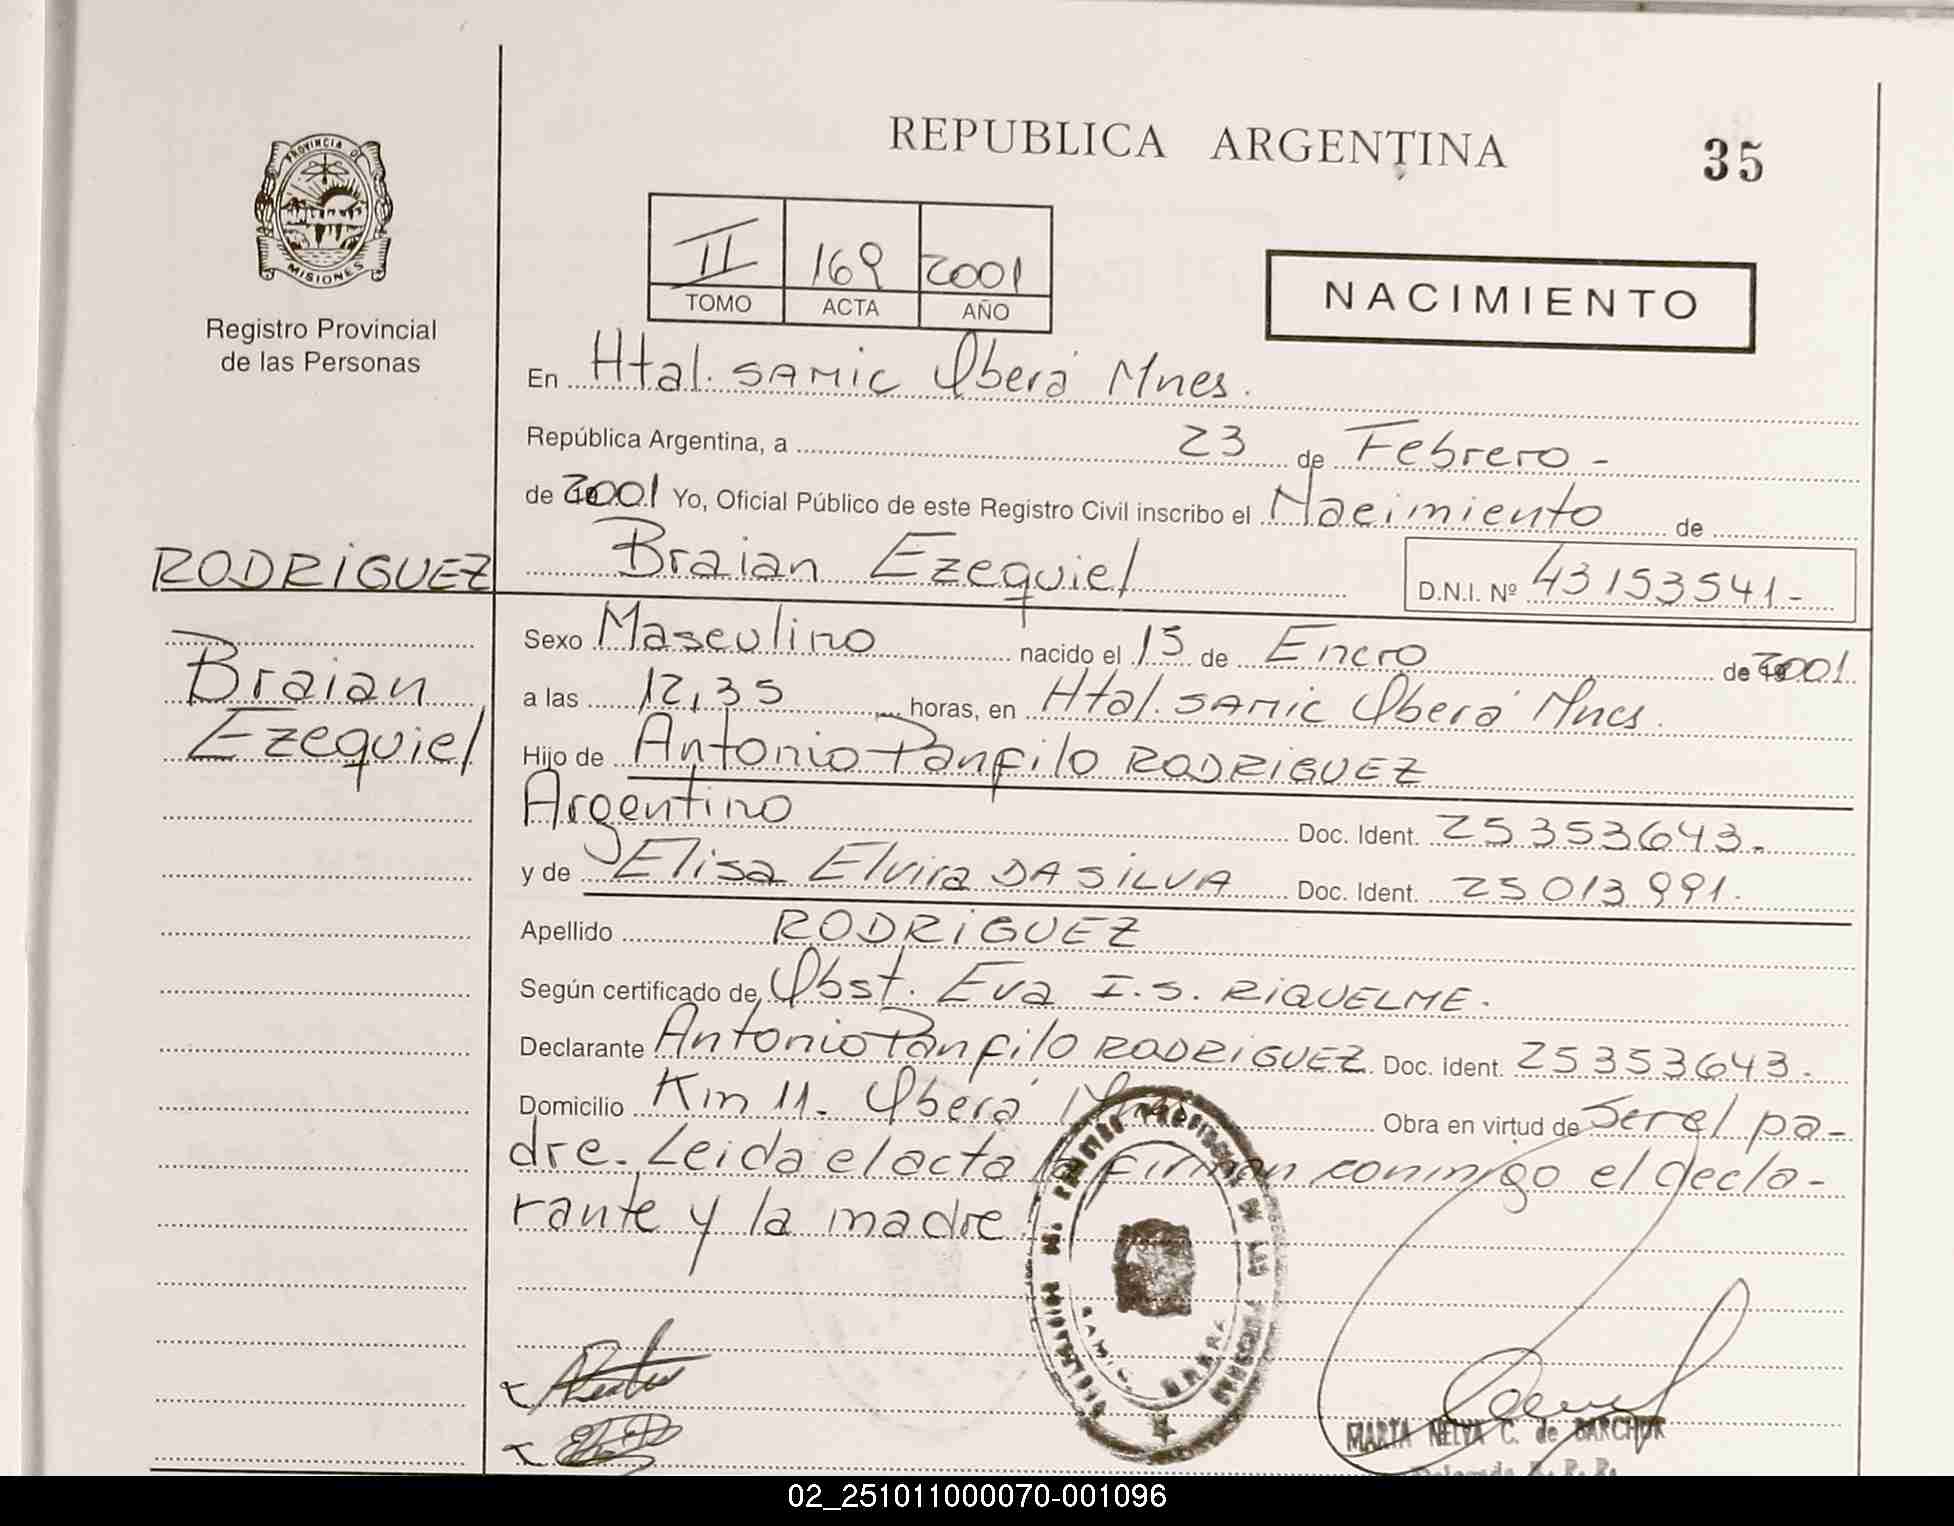 REPUBLICA ARGENTINA
35
PROVINCIA DE
MISIONES
Registro Provincial
de las Personas
II 169 2001
TOMO ACTA AÑO
NACIMIENTO
En Htal. SAMIC Oberá Mnes.
República Argentina, a 23 de Febrero -
de 2001 Yo, Oficial Público de este Registro Civil inscribo el Nacimiento de
RODRIGUEZ
Braian Ezequiel D.N.I. Nº 43153541-
Braian
Ezequiel
Sexo Masculino nacido el 15 de Enero de 2001
a las 12,35 horas, en Htal. SAMIC Oberá Mnes.
Hijo de Antonio Panfilo RODRIGUEZ
Argentino Doc. Ident. 25353643.-
y de Elisa Elvira DA SILVA Doc. Ident. 25013991.
Apellido RODRIGUEZ
Según certificado de Obst. Eva I.S. RIQUELME.
Declarante Antonio Panfilo RODRIGUEZ Doc. Ident. 25353643.
Domicilio Km 11. Oberá Obra en virtud de Ser el pa-
dre. Leida el acta la firman conmigo el decla-
rante y la madre
SAMIC. OBERA
MARTA NELVA C. de BARCHUK
02_251011000070-001096